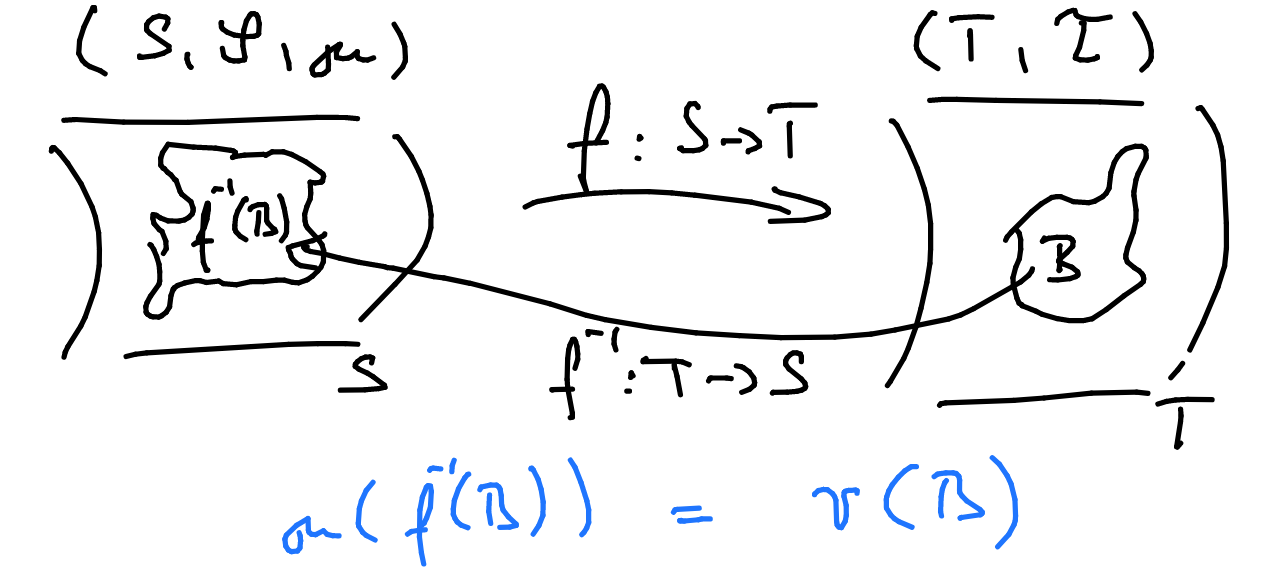 (S, 𝒮, μ) (T, 𝒯)
f : S → T
f⁻¹(B) B
S f⁻¹ : T → S T
μ(f⁻¹(B)) = ν(B)